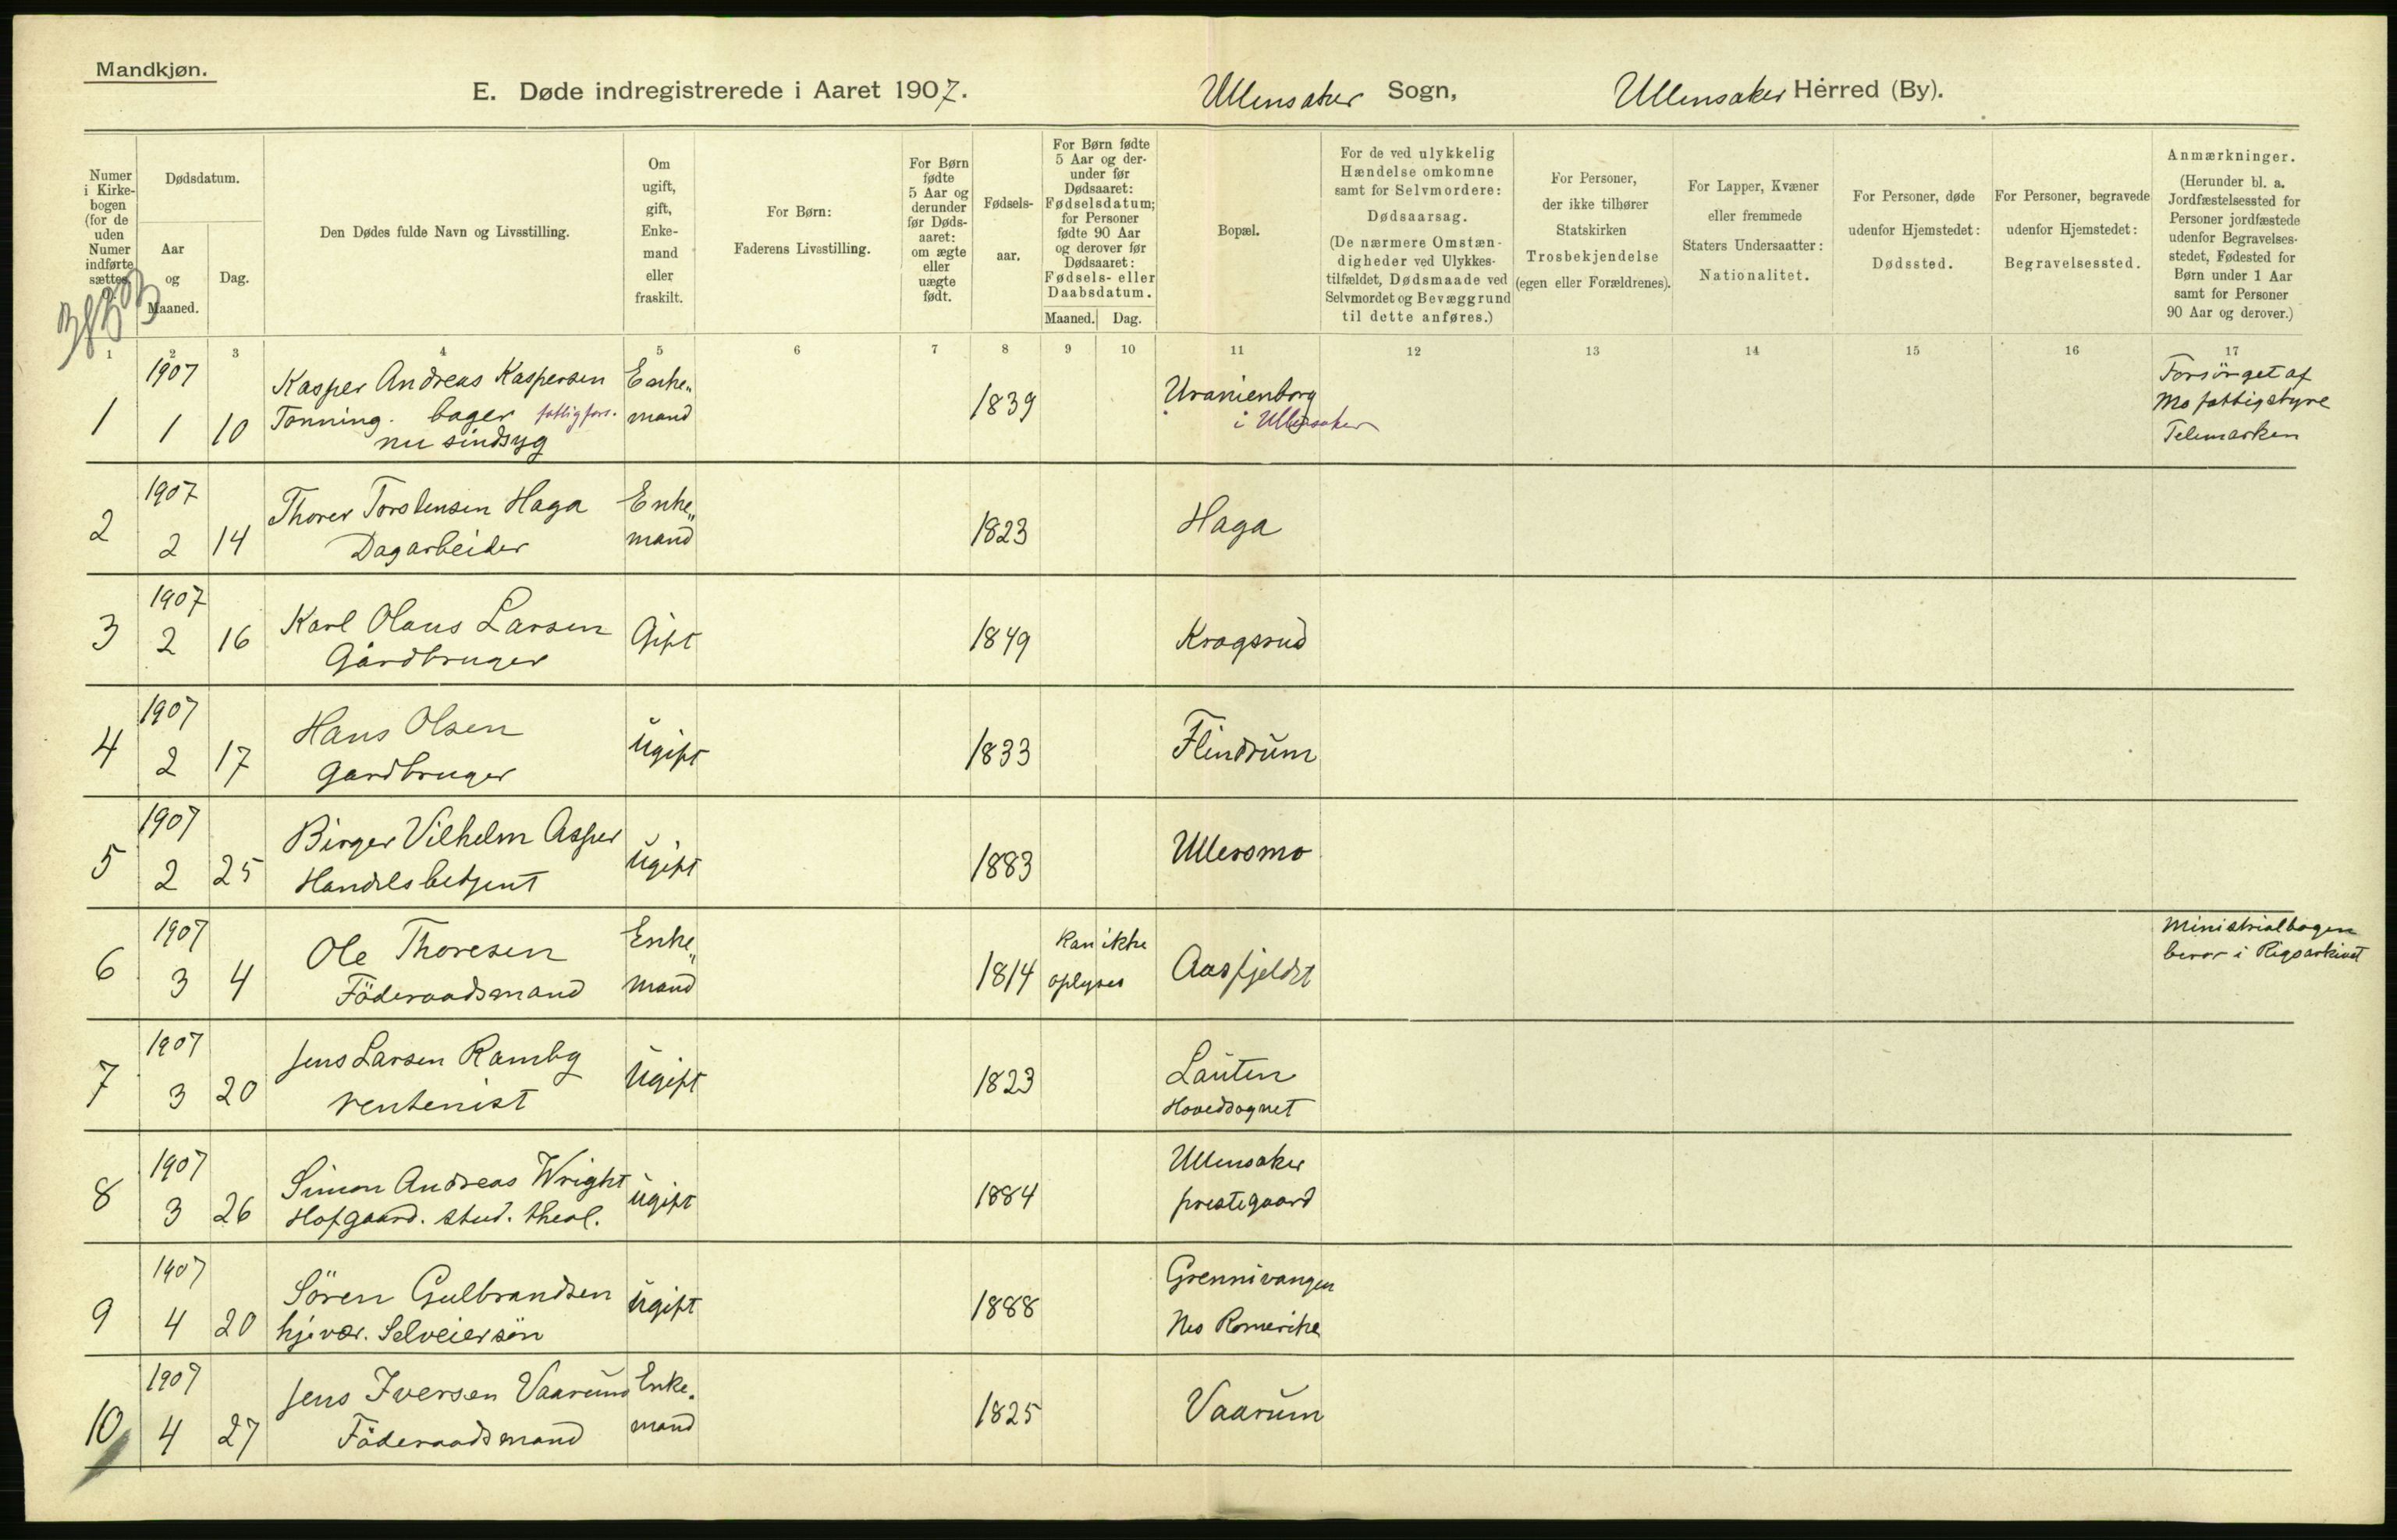 Mandkjøn.
E. Døde indregistrerede i Aaret 1907. Ullensaker Sogn, Ullensaker Herred (By).
Numer i Kirkebogen (for de uden Numer indførte sættes
Dødsdatum.
Aar og Maaned.
Dag.
Den Dødes fulde Navn og Livsstilling.
Om ugift, gift, Enkemand eller fraskilt.
For Børn:
Faderens Livsstilling.
For Børn fødte 5 Aar og derunder før Dødsaaret: om ægte eller uægte født.
Fødselsaar.
For Børn fødte 5 Aar og derunder før Dødsaaret: Fødselsdatum; for Personer fødte 90 Aar og derover før Dødsaaret: Fødsels- eller Daabsdatum.
Maaned. Dag.
Bopæl.
For de ved ulykkelig Hændelse omkomne samt for Selvmordere:
Dødsaarsag.
(De nærmere Omstændigheder ved Ulykkestilfældet, Dødsmaade ved Selvmordet og Bevæggrund til dette anføres.)
For Personer, der ikke tilhører Statskirken
Trosbekjendelse
(egen eller Forældrenes).
For Lapper, Kvæner eller fremmede Staters Undersaatter:
Nationalitet.
For Personer, døde udenfor Hjemstedet:
Dødssted.
For Personer, begravede udenfor Hjemstedet:
Begravelsessted.
Anmærkninger.
(Herunder bl. a. Jordfæstelsessted for Personer jordfæstede udenfor Begravelsesstedet, Fødested for Børn under 1 Aar samt for Personer 90 Aar og derover.)
1 2 3 4 5 6 7 8 9 10 11 12 13 14 15 16 17
1 1907 1 10 Kasper Andreas Kaspersen Tonning. bager fattigfors. nu sindsyg Enkemand 1839 Uranienborg i Ullensaker Forsörget af Mo fattigstyre Telemarken
2 1907 2 14 Thorer Torstensen Haga Dagarbeider Enkemand 1823 Haga
3 1907 2 16 Karl Olaus Larsen Gårdbruger Gift 1849 Kragsrud
4 1907 2 17 Hans Olsen gardbruger ugift 1833 Flindrum
5 1907 2 25 Birger Vilhelm Asper Handelsbetjent ugift 1883 Ullersmo
6 1907 3 4 Ole Thoresen Föderaadsmand Enkemand 1814 Kan ikke oplyses Aasfjeldet Ministrialbogen beror i Rigsarkivet
7 1907 3 20 Jens Larsen Ramby rentenist Ugift 1823 Lauten Hovedsognet
8 1907 3 26 Simon Andreas Wright Hofgaard. stud. theol. ugift 1884 Ullensaker prestegaard
9 1907 4 20 Sören Gulbrandsen hjevær. Selveiersön ugift 1888 Grennivangen Nes Romerike
10 1907 4 27 Jens Iversen Vaarum Föderaadsmand Enkemand 1825 Vaarum